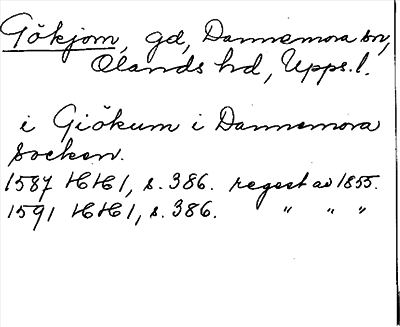 Gökjom, gd, Dannemora sn,
Olands hd, Upps. l.
i Giökum i Dannemora
socken.
1587 HH 1, s. 386. regest av 1855.
1591 HH 1, s. 386. " " "